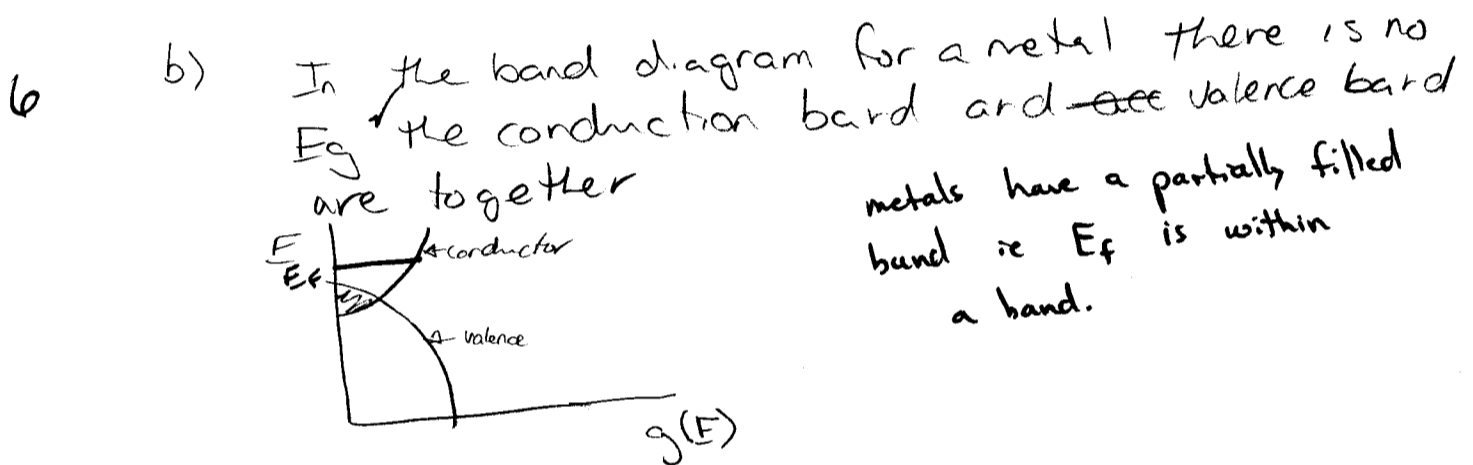 6
b) In the band diagram for a metal there is no
Eg the conduction band and valence band
are together
metals have a partially filled
band ie Ef is within
a band.
E
conductor
Ef
valence
g(E)